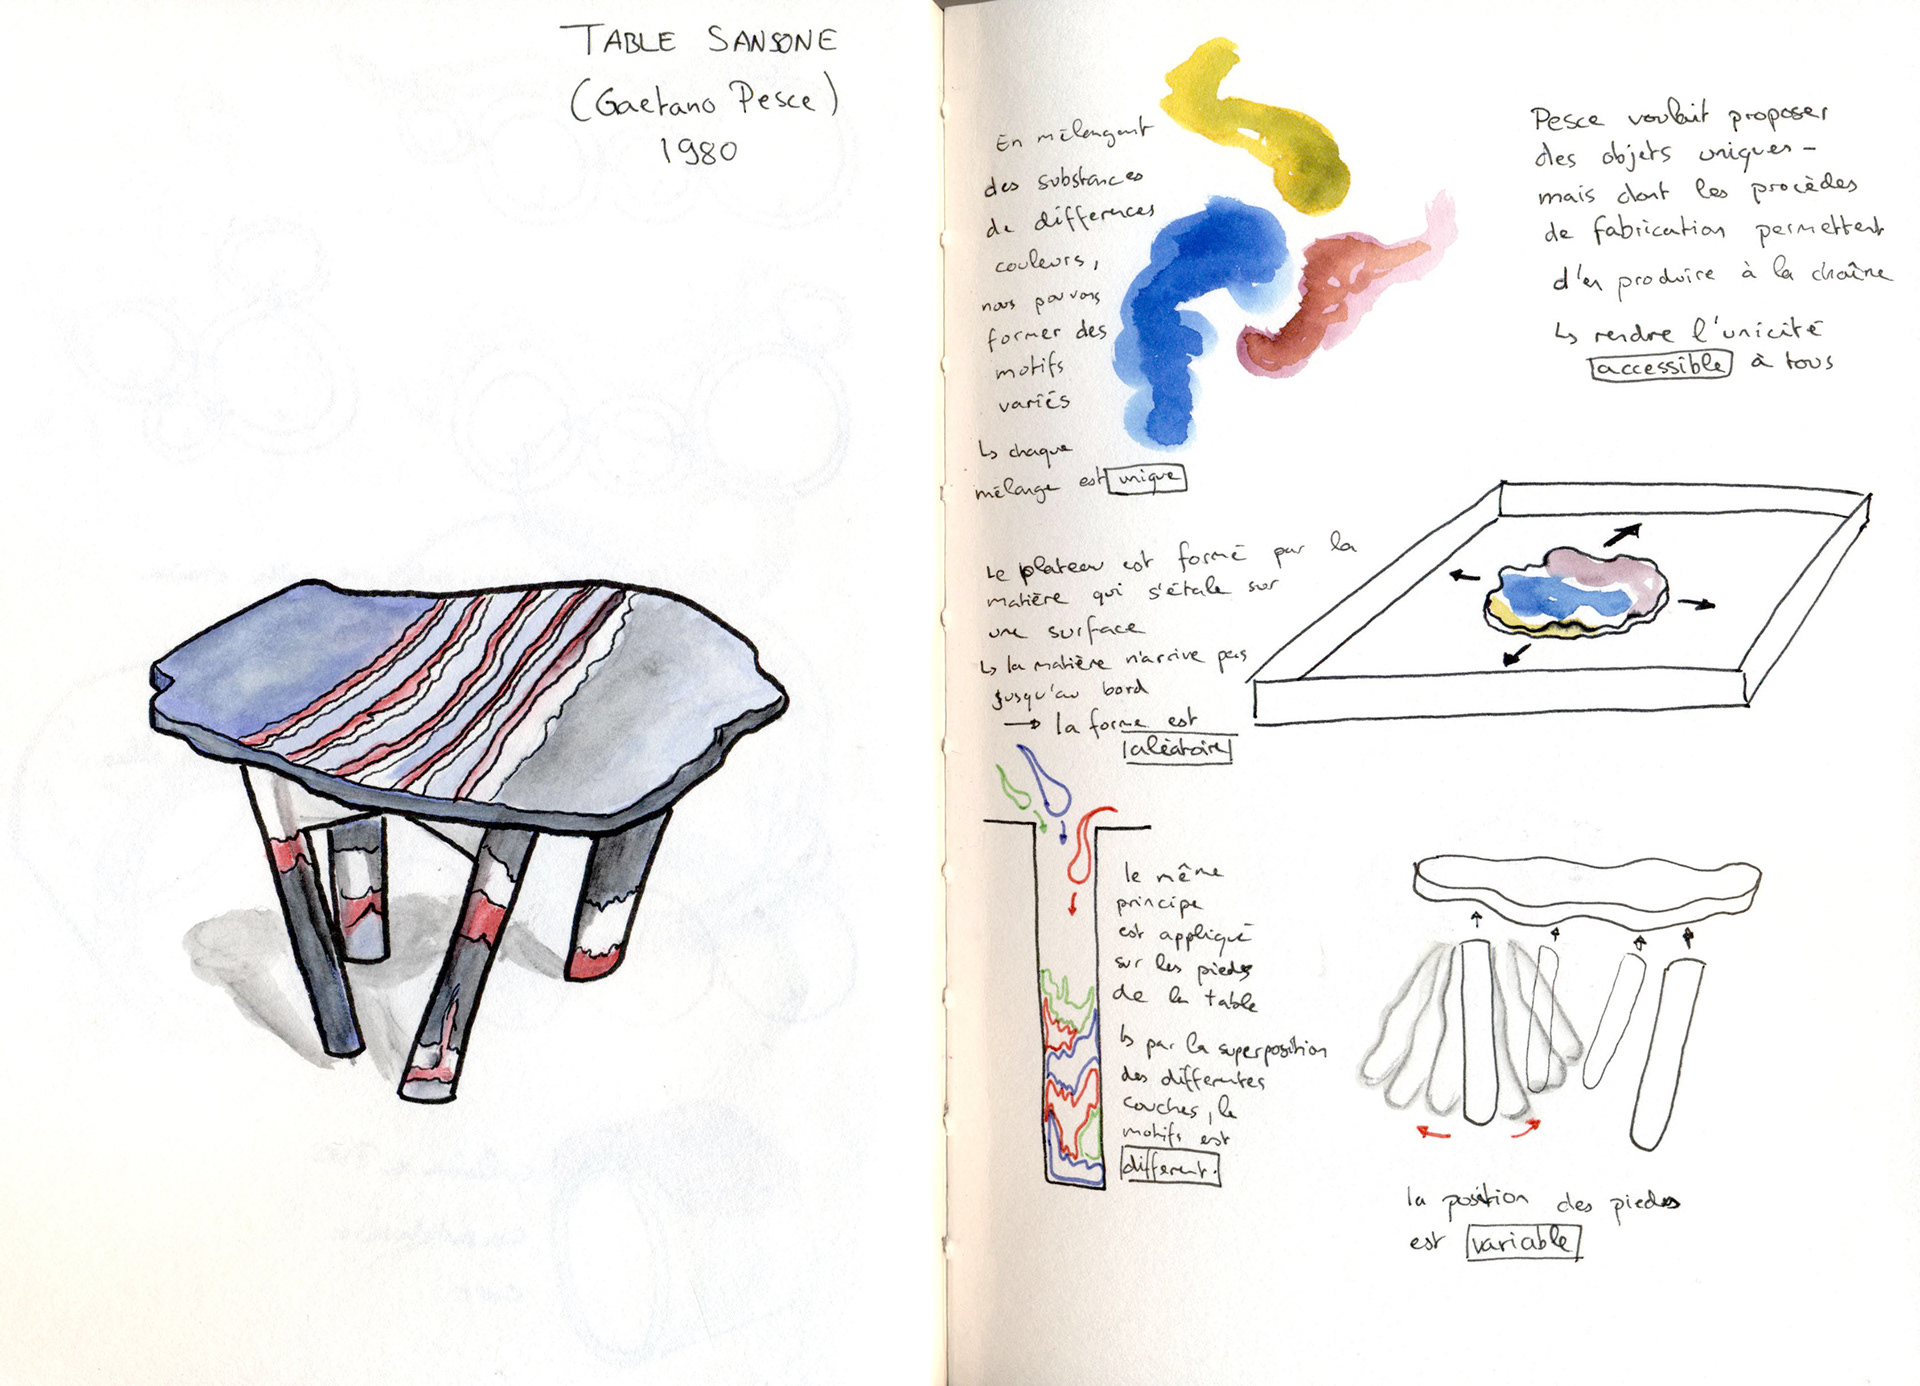 TABLE SANSONE
(Gaetano Pesce)
1980
En mélangeant
des substances
de différences
couleurs,
nous pouvons
former des
motifs
variés
↳ chaque
mélange est unique
Pesce voulait proposer
des objets uniques -
mais dont les procèdés
de fabrication permettent
d'en produire à la chaîne
↳ rendre l'unicité
accessible à tous
Le plateau est formé par la
matière qui s'étale sur
une surface
↳ la matière n'arrive pas
jusqu'au bord
→ la forme est
aléatoire
le même
principe
est appliqué
sur les pieds
de la table
↳ par la superposition
des differentes
couches, le
motifs est
different.
la position des pieds
est variable